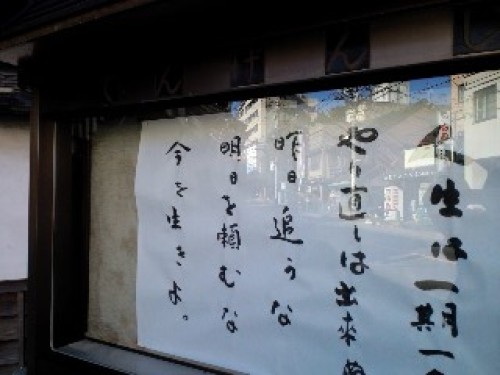 人生は一期一会
やり直しは出来
昨日追うな
明日を頼むな
今を生きよ。